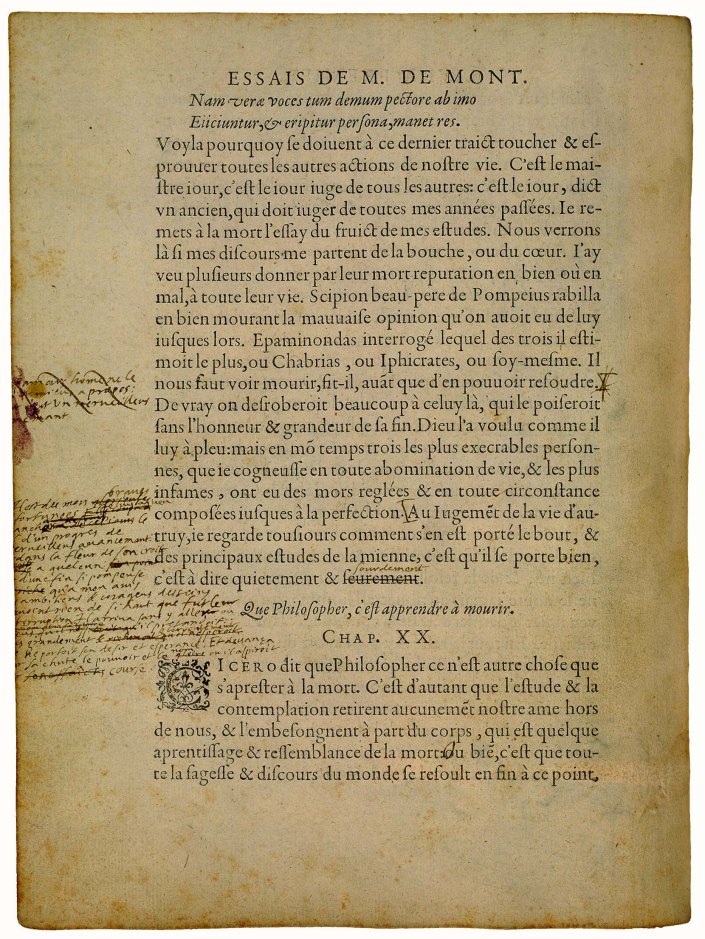 ESSAIS DE M. DE MONT.
Nam veræ voces tum demum pectore ab imo
Eiiciuntur, & eripitur persona, manet res.
Voyla pourquoy se doiuent à ce dernier traict toucher & es-
prouuer toutes les autres actions de nostre vie. C'est le mai-
stre iour, c'est le iour iuge de tous les autres: c'est le iour, dict
vn ancien, qui doit iuger de toutes mes années passées. Ie re-
mets à la mort l'essay du fruict de mes estudes. Nous verrons
là si mes discours me partent de la bouche, ou du cœur. I'ay
veu plusieurs donner par leur mort reputation en bien où en
mal, à toute leur vie. Scipion beau-pere de Pompeius rabilla
en bien mourant la mauuaise opinion qu'on auoit eu de luy
iusques lors. Epaminondas interrogé lequel des trois il esti-
moit le plus, ou Chabrias, ou Iphicrates, ou soy-mesme. Il
nous faut voir mourir, fit-il, auāt que d'en pouuoir resoudre.
De vray on desroberoit beaucoup à celuy là, qui le poiseroit
sans l'honneur & grandeur de sa fin. Dieu l'a voulu comme il
luy à pleu: mais en mō temps trois les plus execrables person-
nes, que ie cogneusse en toute abomination de vie, & les plus
infames, ont eu des mors reglées & en toute circonstance
composées iusques à la perfection. Au Iugemēt de la vie d'au-
truy, ie regarde tousiours comment s'en est porté le bout, &
des principaux estudes de la mienne, c'est qu'il se porte bien,
sourdement
c'est à dire quietement & seurement.
Que Philosopher, c'est apprendre à mourir.
CHAP. XX.
CICERO dit que Philosopher ce n'est autre chose que
s'aprester à la mort. C'est d'autant que l'estude & la
contemplation retirent aucunemēt nostre ame hors
de nous, & l'embesongnent à part du corps, qui est quelque
aprentissage & ressemblance de la mort: Ou biē, c'est que tou-
te la sagesse & discours du monde se resoult en fin à ce point,
homme le
est un
Il est des mors
fortunees
d'un progres de
dans la fleur de son croit
a quelcun
d'une fin si pompeuse
qu'a mon avis
ambitieus & corageus desseins
si haut que fut leur
sans y aller
son desir et esperance. Et devança
sa chute le pouvoir et le
course.